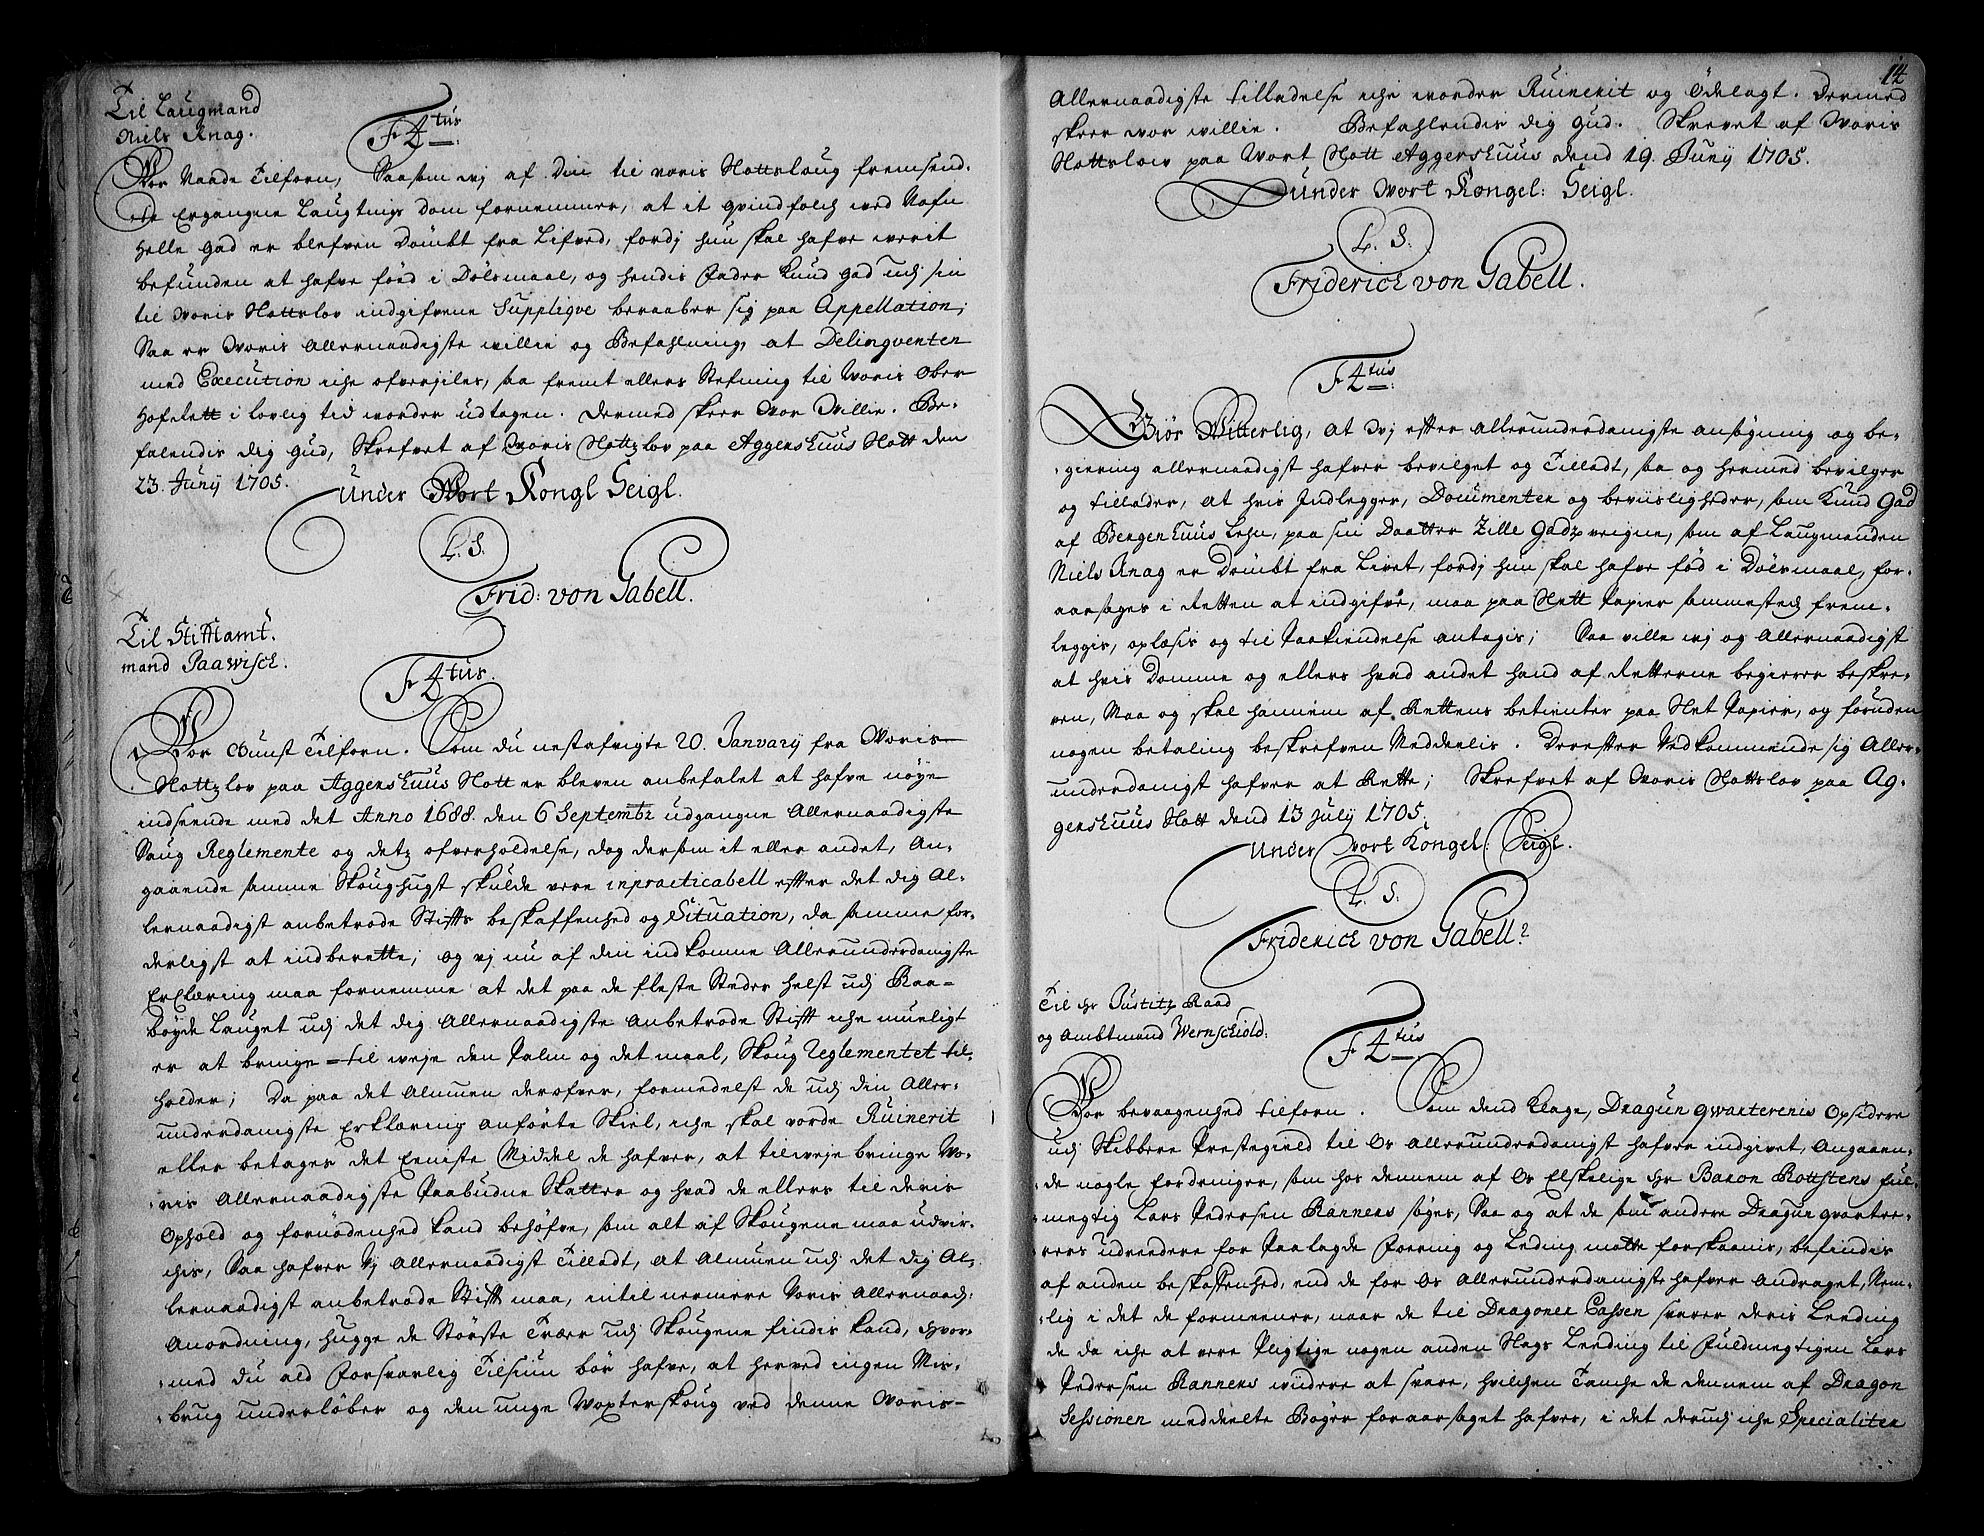 Til Laugmand
Niels Knag.
F 4tus
Vor Naade Tilforn, Saasom vj af Din til voris Slottsloug fremsend-
te Ergangne Laugtings dom fornemmer, at it qvindfolch ved Nafn
Helle Gad er blefven Dømbt fra Lifved, fordj hun skal hafve verit
befunden at hafve fød i Dølsmaal, og hendis Fader Knud Gad udj sin
til Voris Slottslov indgifvene Supplique beraaber sig paa Appellation;
Saa er Voris Allernaadigste willie og Befahlning, at Delinqventen
med Execution iche ofveriiles, saa fremt ellers Stefning til Voris Ober
Hofrett i lovlig tid worder udtagen. Dermed skeer Vor Villie. Be-
falendis dig Gud, Skrefvet af Voris Slottzlov paa AggersHuus Slott den
23. Junij 1705.
Under Vort Kongl Seigl.
L. S.
Frid: von Gabell.
Til Stifftamt-
mand Paawisch.
F 4tus.
Vor Gunst Tilforn. Som du nestafvigte 20. Januarij fra Voris
Slottzlov paa AggersHuus Slott er bleven anbefalet at hafve nøye
indseende med det Anno 1688. den 6 Septembr udgangne Allernaadigste
Saug Reglemente og detz ofverholdelse, dog dersom it eller andet, An-
gaaende samme Skoughugst skulde vere inpracticabell effter det dig Al-
lernaadigst anbetrode Stiffts beskaffenhed og Situation, da samme for-
derligst at indberette; og vj nu af din indkomne Allerunderdanigste
Erclæring maa fornemme at det paa de fleste Steder helst udj Raa-
bøyde Lauget udj det dig Allernaadigste Anbetrode Stifft iche mueligt
er at bringe til weje den Palm og det maal, Skoug Reglementet til-
holder; Da paa det Almuen derofver, formedelst de udj din Aller-
underdanigste Erklæring Anførte Skiel, iche skal vorde Ruinerit
eller betages det Eeniste Middel de hafver, at tilveje bringe Vo-
ris Allernaadigste Paabudne Skatter og hvad de ellers til deris
Ophold og fornødenhed kand behøfve, som alt af Skougene maa udvir-
chis, Saa hafver Vj Allernaadigst Tilladt, at Almuen udj det dig Al-
lernaadigst anbetrode Stifft maa, intil nermere Voris Allernaad:
Anordning, hugge de Største Træer udj Skougene findis kand, hvor-
med du ald Forsvarlig Tilsiun bør hafve, at herved ingen Mis-
brug underløber og den unge Voxterskoug ved denne Voris
14
Allernaadigste tilladelse iche worder Ruinerit og Ødelagt. Dermed
skeer vor willie. Befahlendis dig Gud. Skrevet af Voris
Slottslov paa Vort Slott AggersHuus dend 19. Junij 1705.
Under Vort Kongel: Seigl.
L. S.
Friderich von Gabell.
F 4tus
Giør Witterlig, at Vj effter allerunderdanigste ansøgning og be-
giering allernaadigst hafver bevilget og Tilladt, saa og hermed bevilger
og tillader, at hvis Indlegger, Documenter og beviisligheder, som Knud Gad
af BergenHuus Lehn, paa sin Daatter Zille Gadz veigne, som af Laugmanden
Niels Knag er Dømbt fra Livet, fordj hun skal hafve fød i Dølsmaal, for-
aarsages i Retten at indgifve, maa paa Slett Papier sammesteds frem-
leggis, oplæsis og til Paakiendelse antagis; Saa ville vj og Allernaadigst
at hvis Domme og ellers hvad andet hand af Retterne begierer beskre-
ven, Maa og skal hannem af Rettens betienter paa Slet Papier, og foruden
nogen betaling beskrefven Meddeelis. Derefter Vedkommende sig Aller-
underdanigst hafver at Rette; Skrefvet af Voris Slottslov paa Ag-
gersHuus Slott dend 13 July 1705.
Under Vort Kongel: Seigl.
L. S.
Friderich von Gabell.
Til Hr Justitz Raad
og Ambtmand Wernschiold:
F 4tus
Vor bevaagenhed tilforn. Som dend Klage, Dragun qvarterenis Opsidere
udj Skibbere Prestegield til Os Allerunderdanigst hafver indgivet, Angaaen-
de nogle fordringer, som hos dennem af Os Elskelige Hr Baron Rostens ful-
megtig Lars Pedersen Ranners søges, Saa og at de som andere Dragun qvarte-
rers udreedere for Paalagde Foering og Leding motte forskaanis, befindis
af anden beskaffenhed, end de for Os Allerunderdanigste hafver Andraget, Nem-
lig i det de formeener, naar de til Dragoner Cassen svarer deris Leeding
de da iche at vere Pligtige nogen anden Slags Leeding til Fuldmegtigen Lars
Pedersen Ranners viidere at svare, hvilchen Tanche de dennem af Dragon
Sessionen meddeelte Bøger foraarsaget hafver, i det derudj iche Specialiter